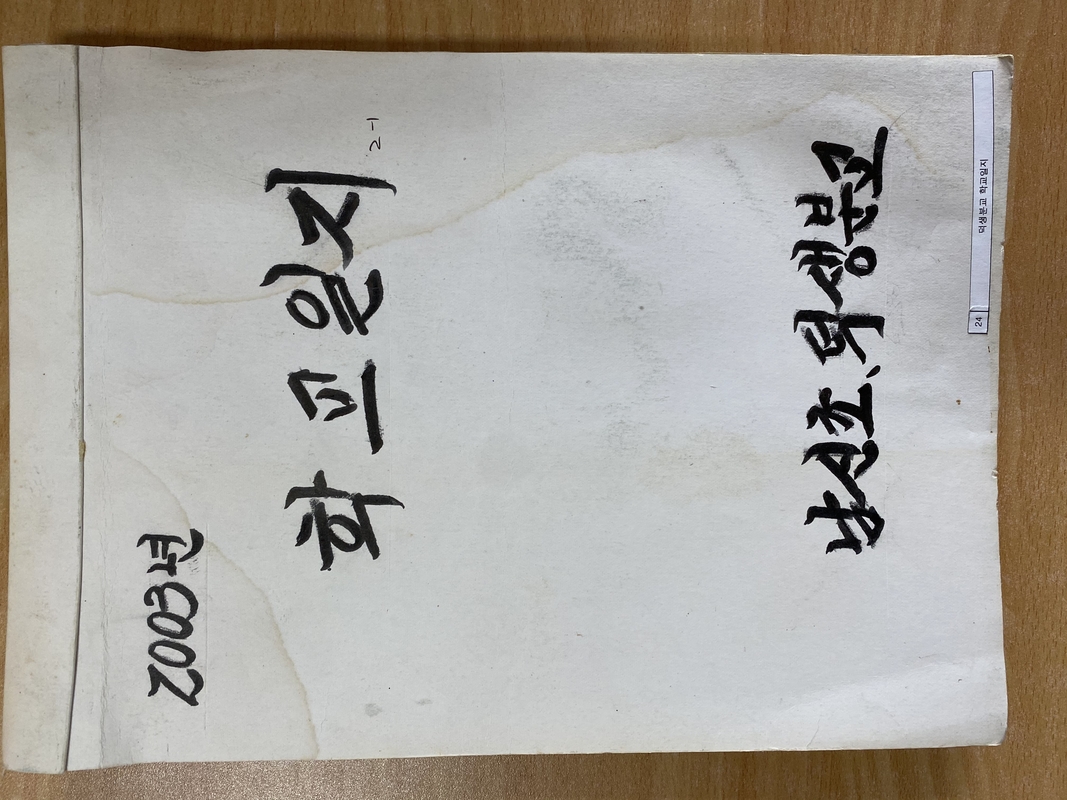 2003년
학교일지
2-1
남신초. 덕생분교
24 덕생분교 학교일지